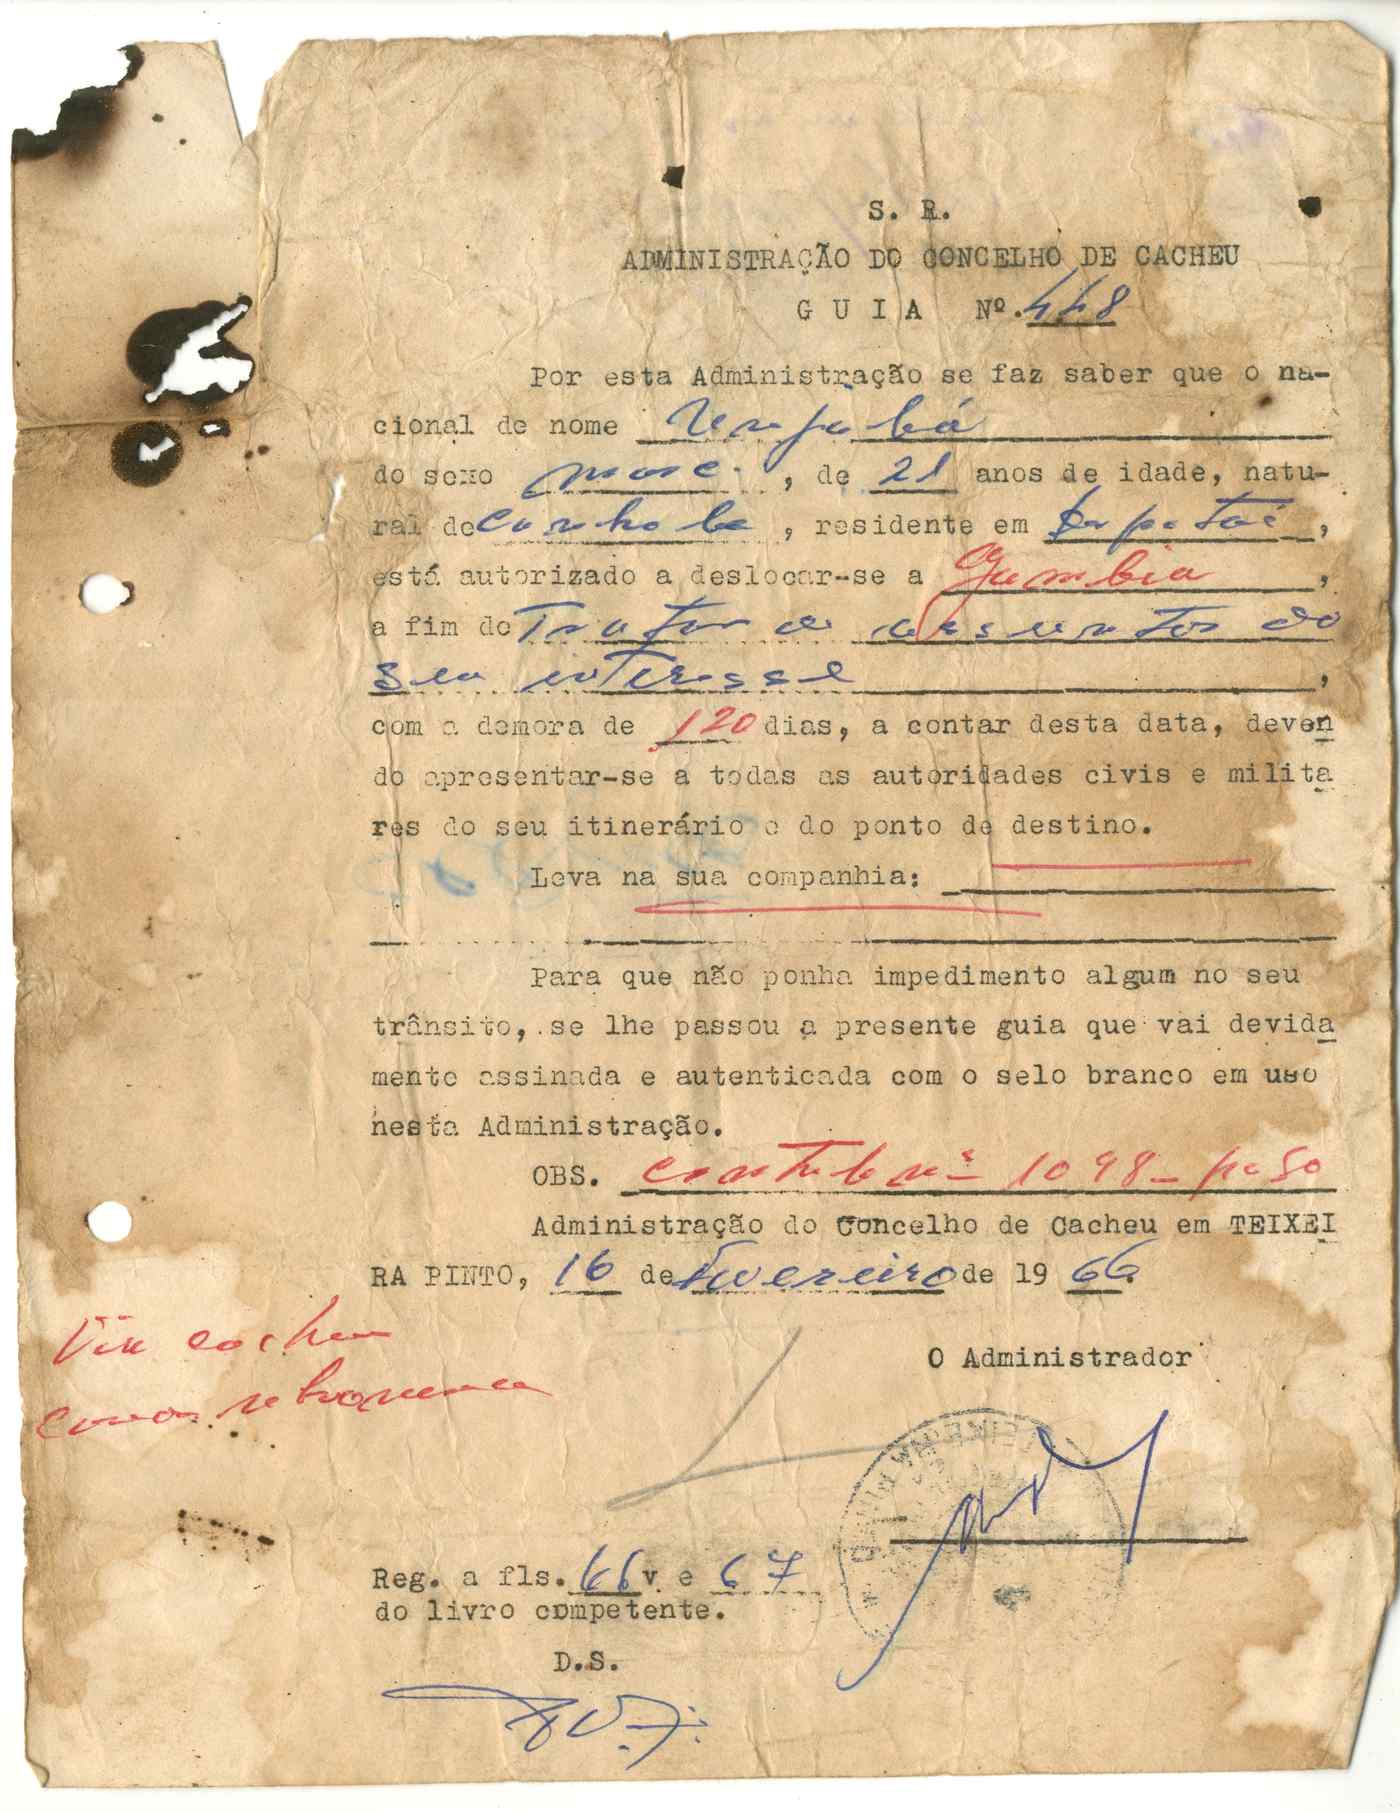 S. R.
ADMINISTRAÇÃO DO CONCELHO DE CACHEU
G U I A Nº. 448
Por esta Administração se faz saber que o na-
cional de nome
do sexo masc. , de 21 anos de idade, natu-
ral de , residente em ,
está autorizado a deslocar-se a Gambia ,
a fim de Tratar de assuntos do
seu interesse ,
com a demora de 120 dias, a contar desta data, deven
do apresentar-se a todas as autoridades civis e milita
res do seu itinerário e do ponto de destino.
Leva na sua companhia:
Para que não ponha impedimento algum no seu
trânsito, se lhe passou a presente guia que vai devida
mente assinada e autenticada com o selo branco em uso
nesta Administração.
OBS. 1098
Administração do Concelho de Cacheu em TEIXEI
RA PINTO, 16 de Fevereiro de 19 66.
Via cacheu
O Administrador
Reg. a fls. 66 v e 67
do livro competente.
D.S.